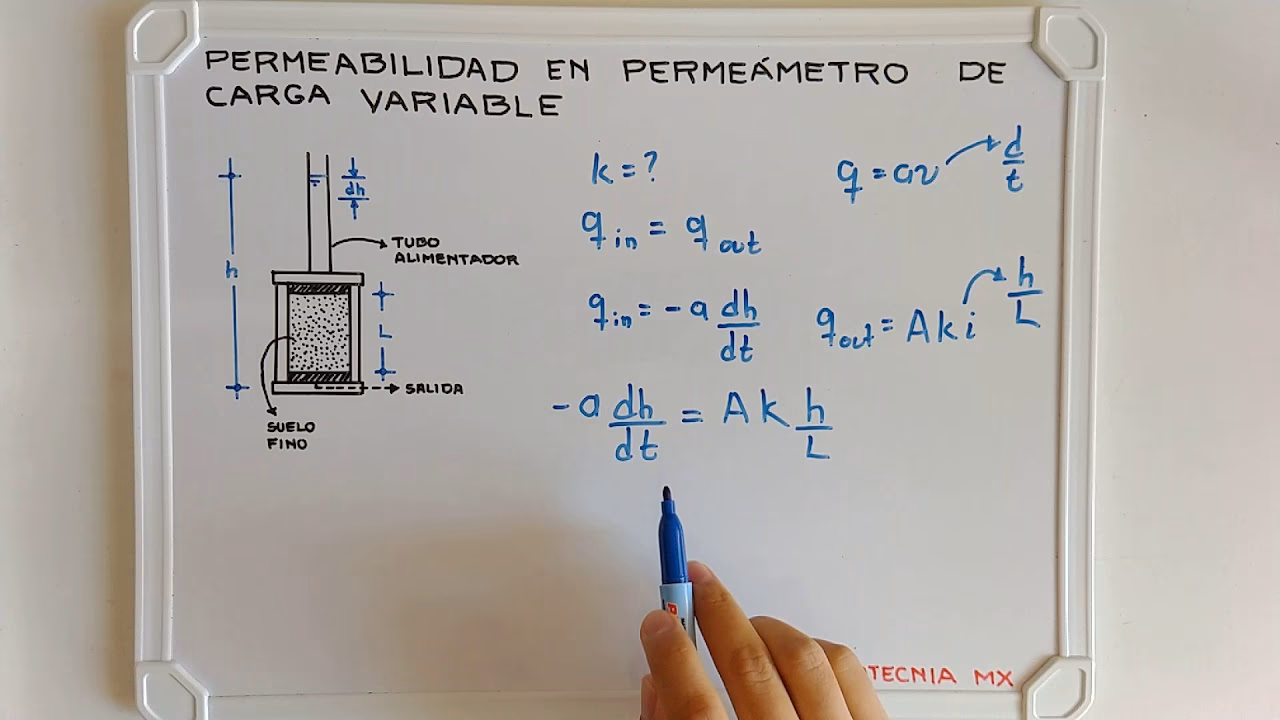 PERMEABILIDAD EN PERMEÁMETRO DE
CARGA VARIABLE
h
dh
TUBO
ALIMENTADOR
L
SALIDA
SUELO
FINO
k = ?
q = av
d/t
q in = q out
q in = - a dh/dt
q out = A k i
h/L
- a dh/dt = A k h/L
TECNIA MX